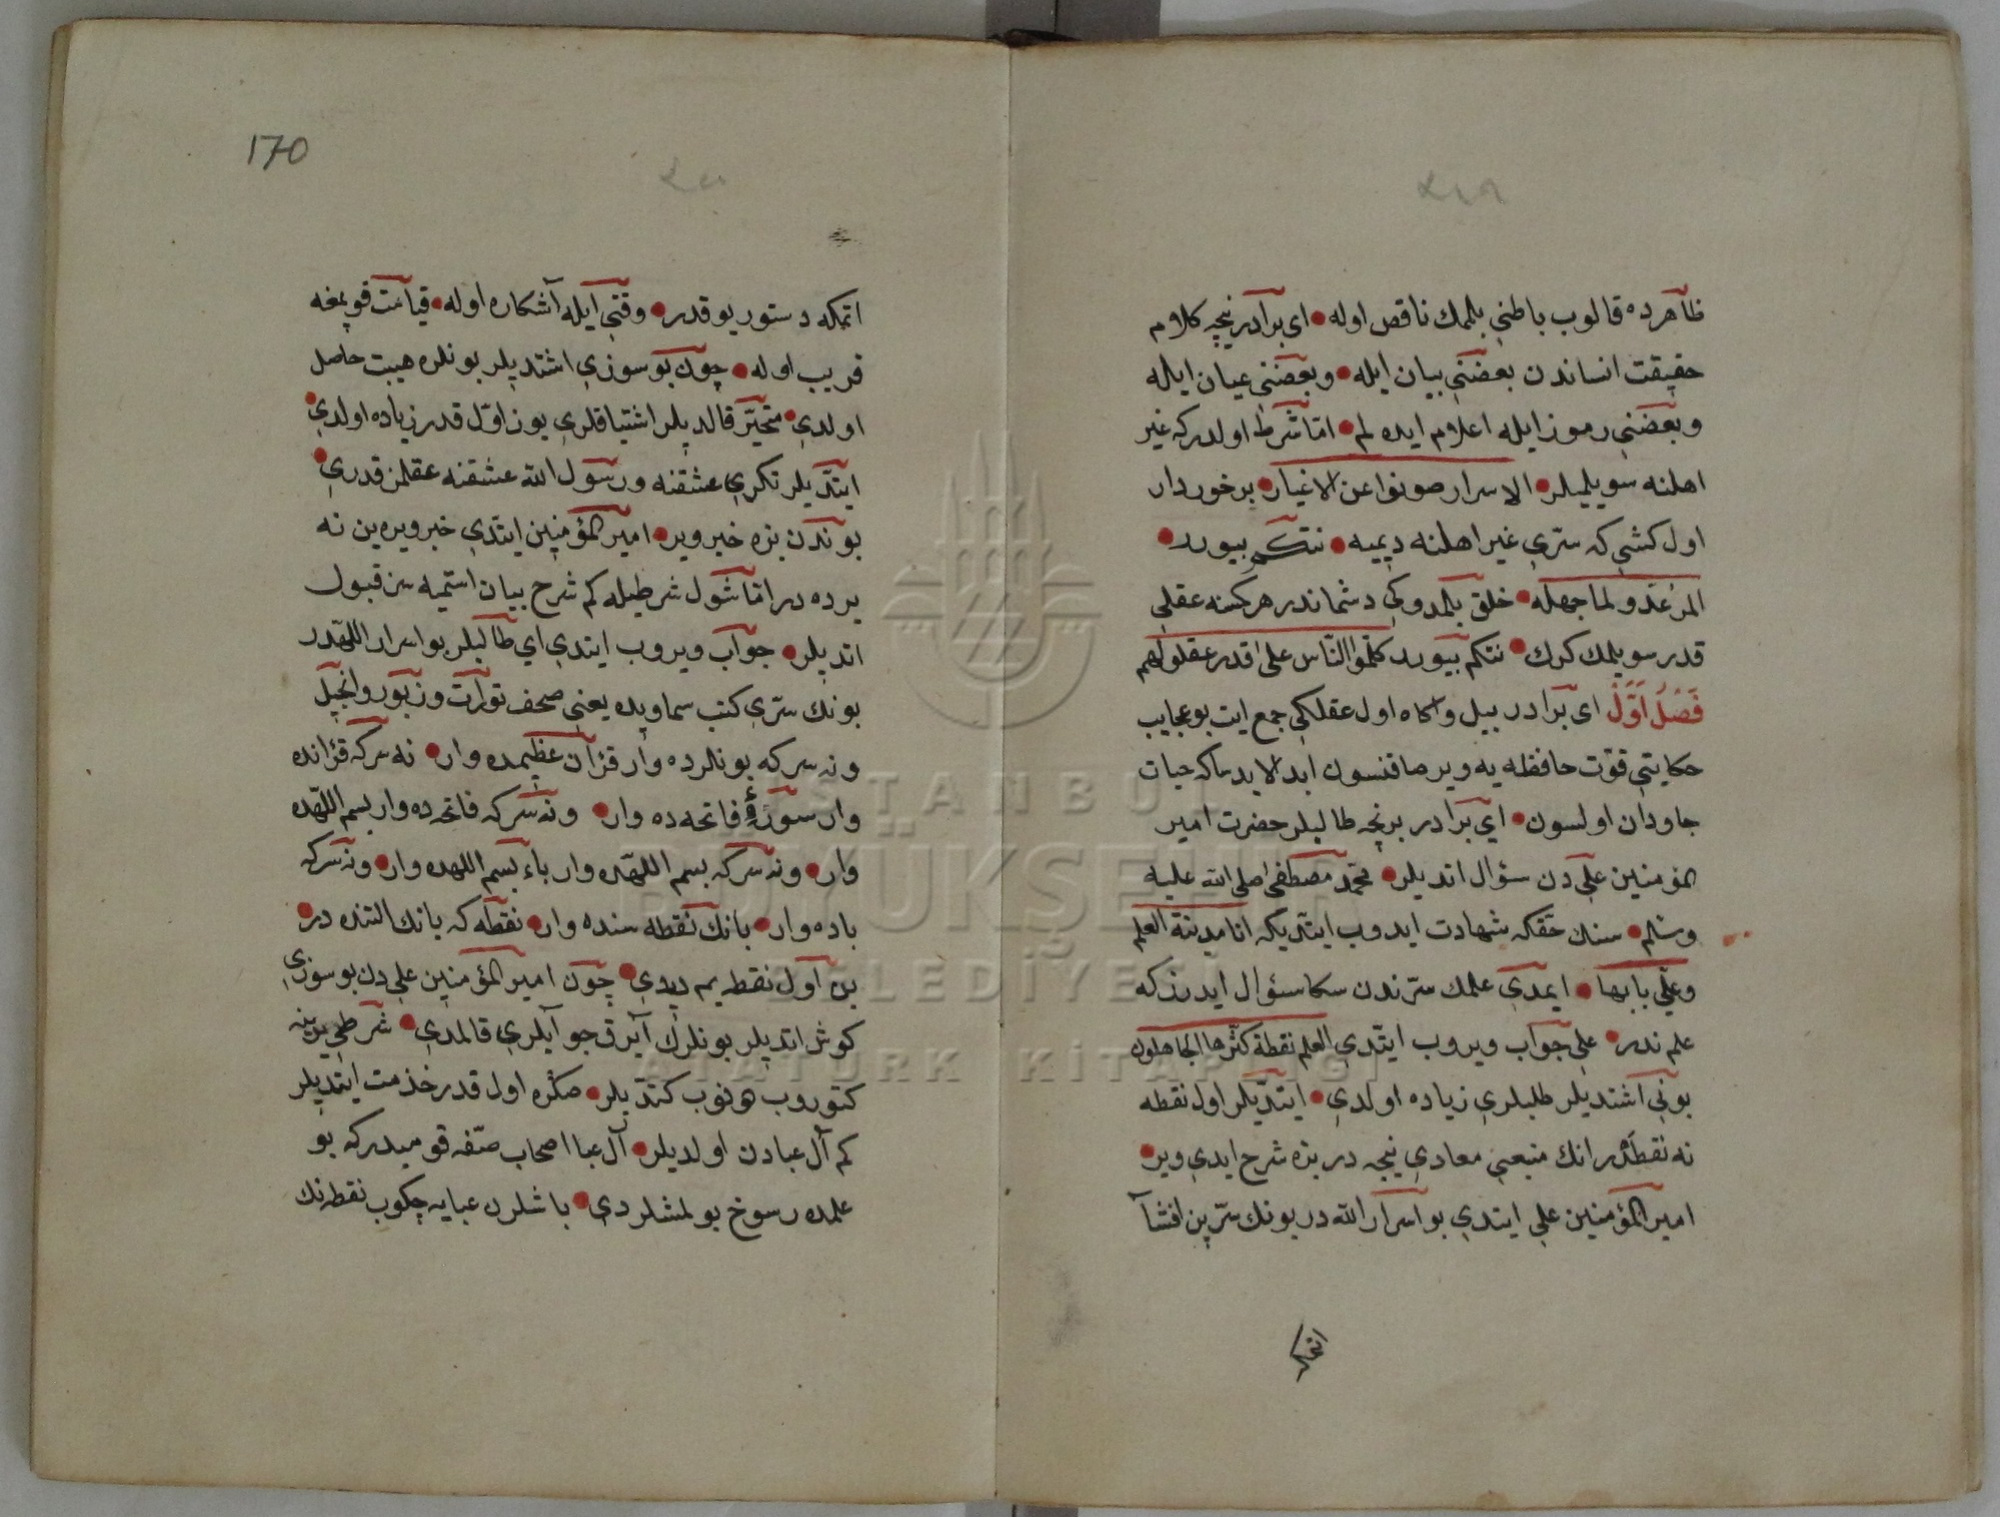 ظاهرده قالوب باطني بلمك ناقص اوله • اى برادر نيچه كلام
حقيقت انساندن بعضني بيان ايله • وبعضني عيان ايله
وبعضني رموز ايله اعلام ايده لم • اما شرط اولدر كه غير
اهلنه سويليلر • الاسرار صونوا عن الاغيار • برخوردار
اول كشي كه سرّي غير اهلنه ديميه • نتكم بيورر •
المرء عدو لما جهله • خلق بلمدوكي دشماندر هر كسنه عقلي
قدر سويلمك كرك • نتكم بيورر كلموا الناس على قدر عقولهم
فصل اوّل اى برادر بيل واكاه اول عقلكي جمع ايت بو عجايب
حكايتي قوّت حافظه يه وير صاقنسون ابد الابد ساكه حيات
جاودان اولسون • اي برادر برنچه طالبلر حضرت امير
المؤمنين علي دن سؤال اتديلر • محمد مصطفى صلى الله عليه
وسلم • سنك حقكه شهادت ايدوب ايتديكه انا مدينة العلم
وعلي بابها • ايمدي علمك سرندن سكا سؤال ايدرز كه
علم ندر • علي جواب ويروب ايتدي العلم نقطة كثرها الجاهلون
بوني اشتديلر طلبلري زياده اولدي • ايتديلر اول نقطه
نه نقطه در انك منبعي معادي نيجه در بزه شرح ايدي وير •
امير المؤمنين علي ايتدي بو اسرار الله در بونك سرّين افشا
اتمكه
170
اتمكه دستور يوقدر • وقتي ايله آشكاره اوله • قيامت قوپمغه
قريب اوله • چون بو سوزي اشتديلر بونلره هيبت حاصل
اولدي • متحيّر قالديلر اشتياقلري يوز اوّل قدر زياده اولدي •
ايتديلر تكري عشقنه ورسول الله عشقنه عقلمز قدري •
بوندن بزه خبر وير • امير المؤمنين ايتدي خبر ويره ين نه
يرده در اما شول شرطيله كم شرح بيان استميه سز قبول
اتديلر • جواب ويروب ايتدي اي طالبلر بو اسرار اللهدر
بونك سرّي كتب سماويده يعني صحف تورات وزبور وانجيل
ونه سر كه بونلرده وار قرآن عظيمده وار • نه سر كه قرآنده
وار سورۀ فاتحه ده وار • ونه سر كه فاتحه ده وار بسم اللهده
وار • ونه سر كه بسم اللهده وار باء بسم اللهده وار • ونه سر كه
باده وار • بانك نقطه سنده وار • نقطه كه بانك التنده در •
بن اول نقطه يم ديدي • چون امير المؤمنين علي دن بو سوزي
كوش اتديلر بونلرك آيرق جوابلري قالمدي • شرطي يرينه
كتوروب دونوب كتديلر • صكره اول قدر خذمت ايتديلر
كم آل عبادن اولديلر • آل عبا اصحاب صفّه قوميدر كه بو
علمده رسوخ بولمشلردي • باشلرن عبايه چكوب نقطه نك